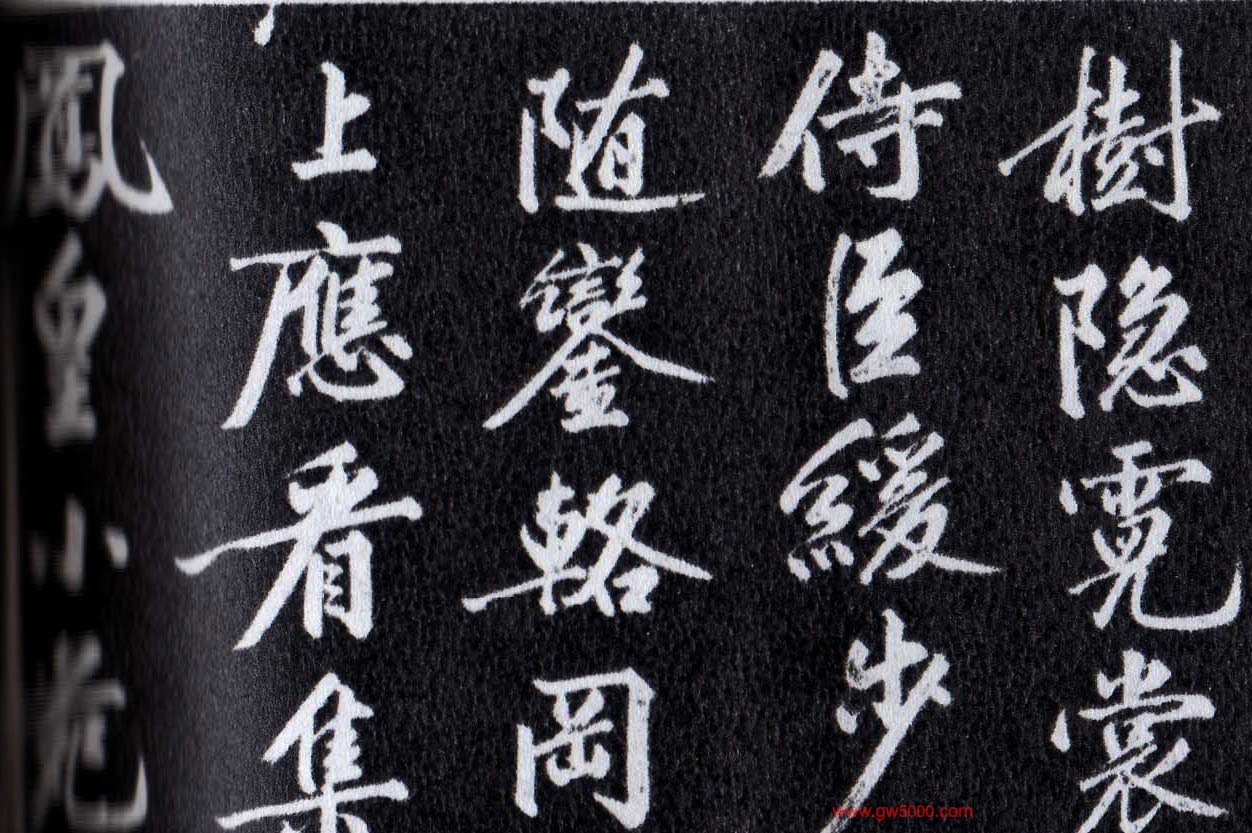 樹隐霓裳
侍臣緩步
随鑾輅岡
上應看集
鳳皇小
www.gw5000.com